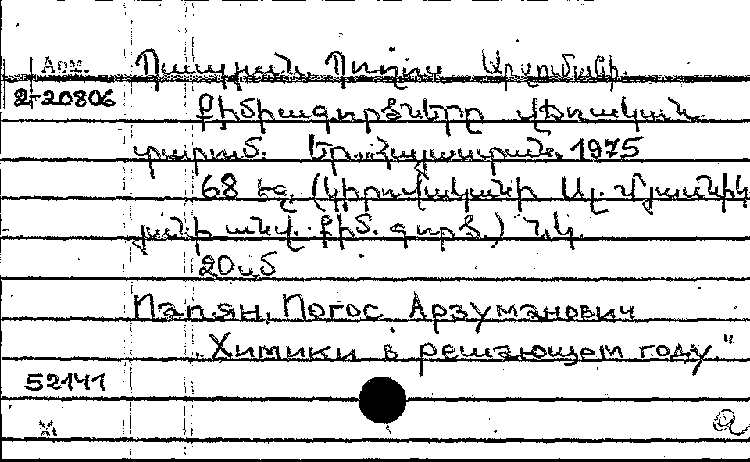 Арм. Պապյան Պողոս Արզումանի.
2-20806 Քիմիագործները վճռական
տարում. Եր., Հայաստան, 1975
68 էջ (Կիրովականի Ալ. Մյասնիկ
յանի անվ. քիմ. գործ.) նկ.
20սմ
Папян, Погос Арзуманович
„Химики в решающем году."
52141
а